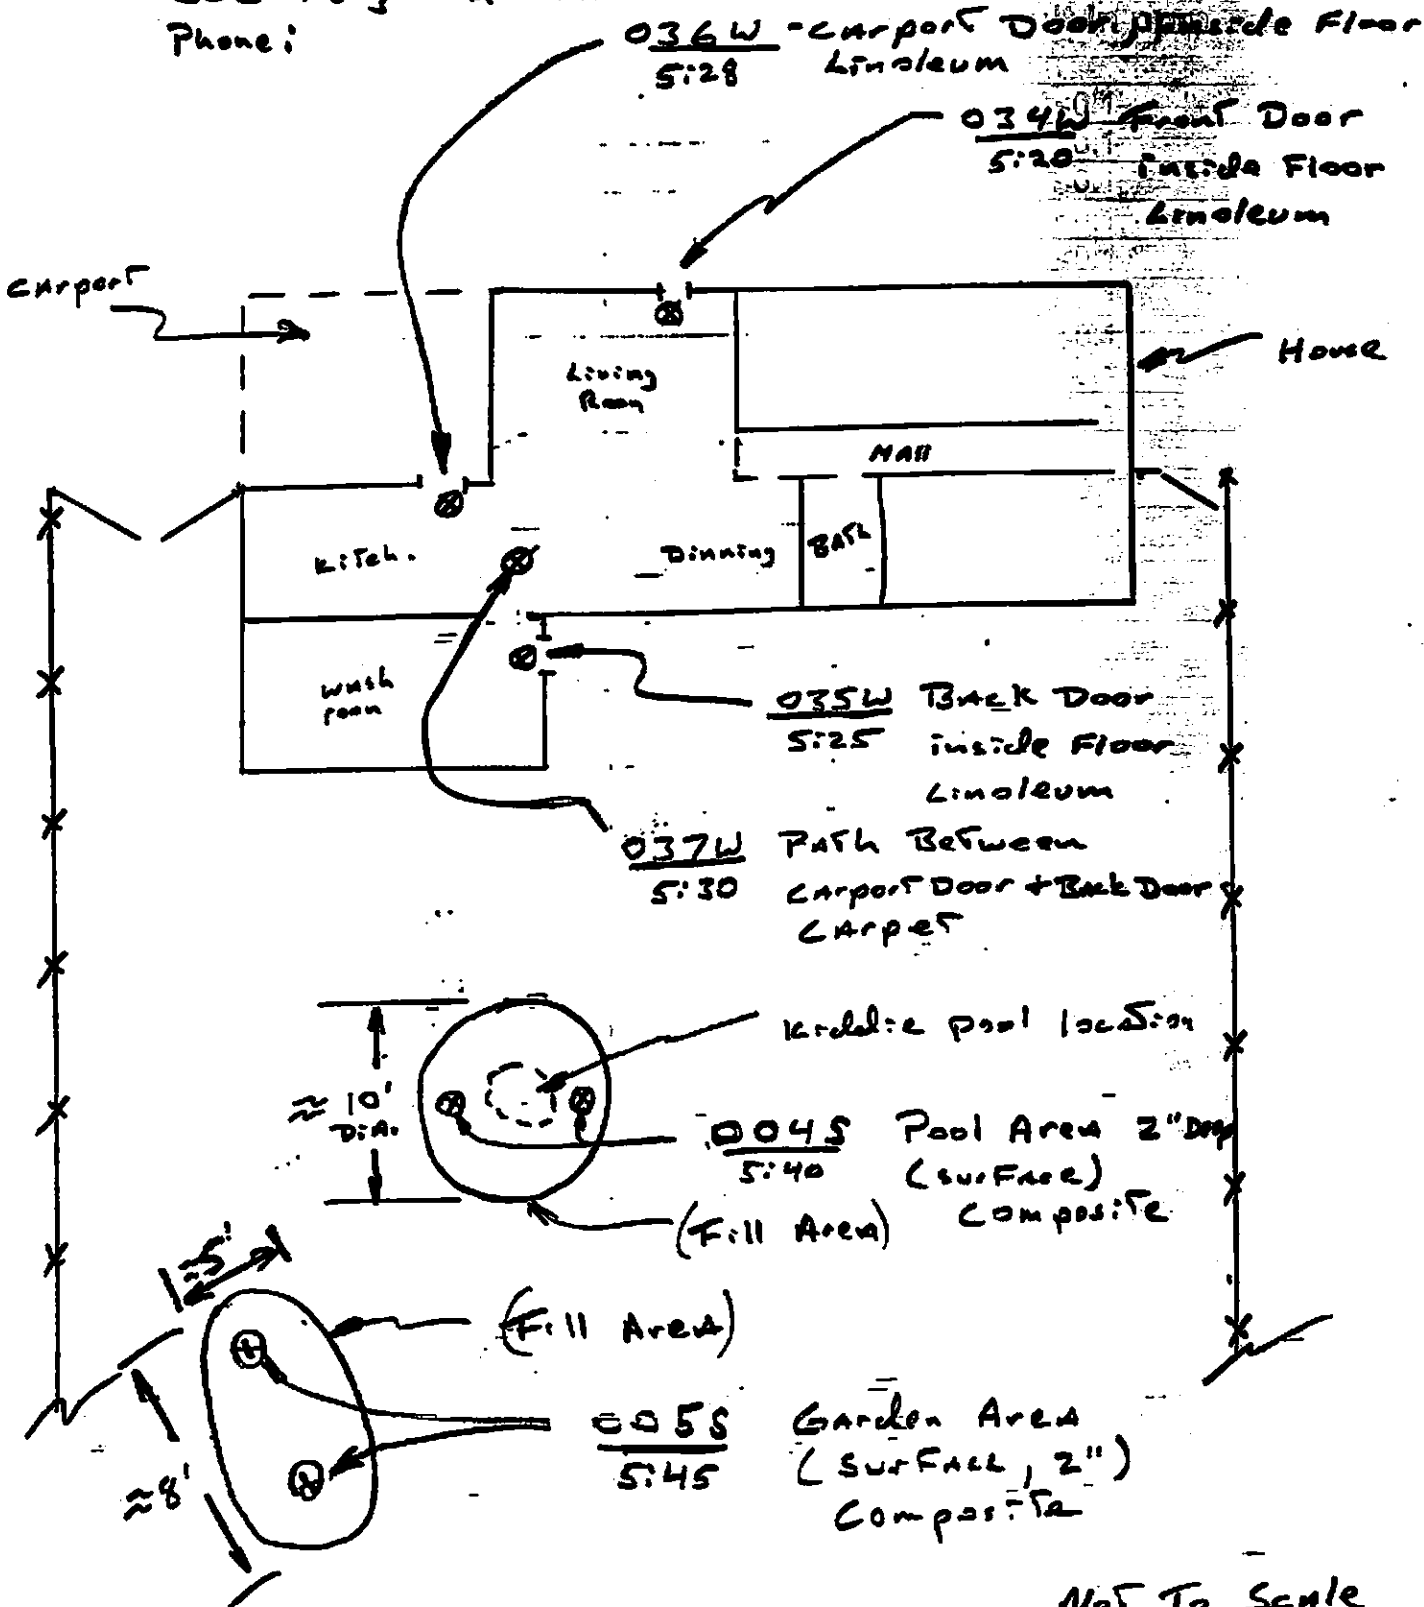 Phone:
036W - Carport Door, inside Floor
5:28 Linoleum
034W Front Door
5:20 inside Floor
Linoleum
Carport
House
Living
Room
Hall
Kitch.
Dinning
Bath
Wash
room
035W Back Door
5:25 inside Floor
Linoleum
037W Path Between
5:30 Carport Door + Back Door
Carpet
Kiddie pool location
≈ 10'
DIA.
004S Pool Area 2" Deep
5:40 (surface)
Composite
(Fill Area)
≈5'
(Fill Area)
005S Garden Area
5:45 (surface, 2")
Composite
≈8'
Not To Scale